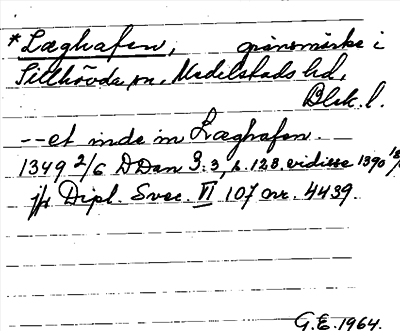 *Læghafen, gränsmärke i
Tillhövda sn, Medelstads hd,
Blek. l.
-- et inde in Læghafen.
1349 2/6 DDan 3:3, s. 128. vidisse 1390
jfr Dipl. Svec. VI, 107 nr. 4439.
G.E. 1964.